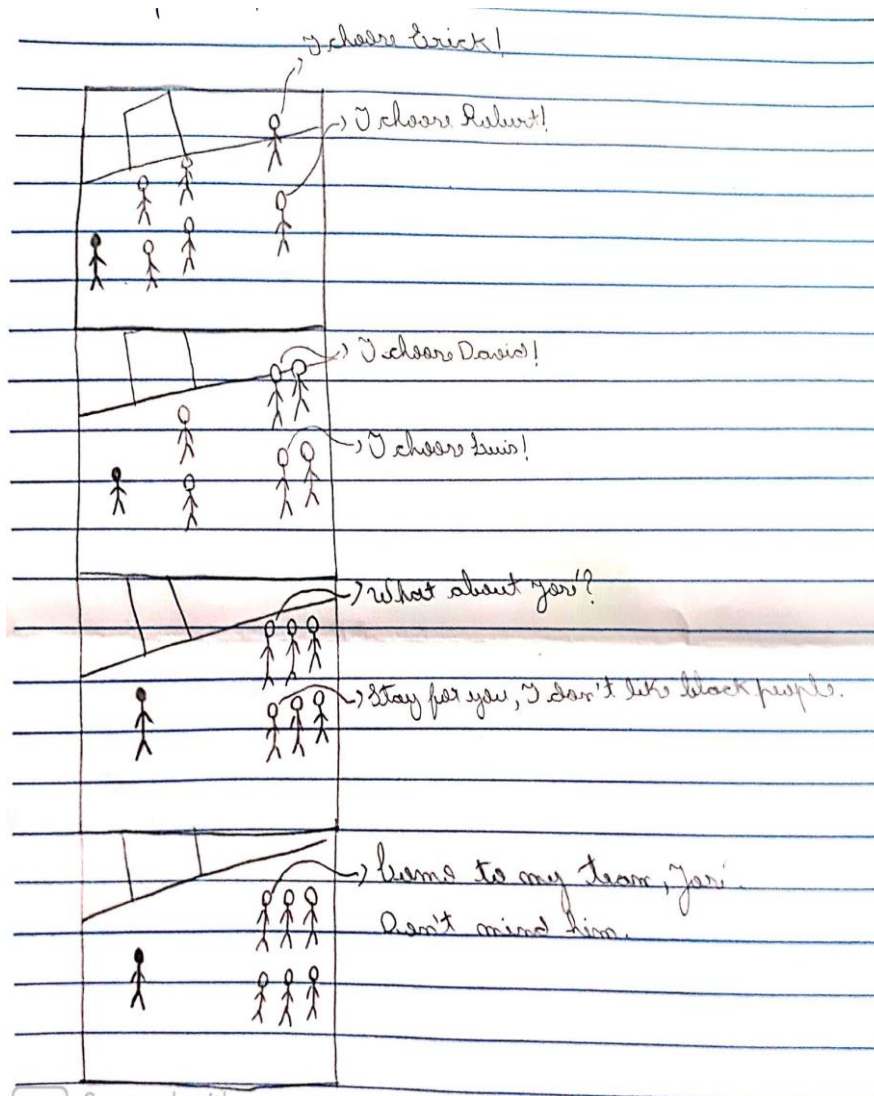 I choose Erick!
I choose Robert!
I choose David!
I choose Luis!
What about José?
Stay for you, I don't like black people.
Come to my team, José.
Don't mind him.